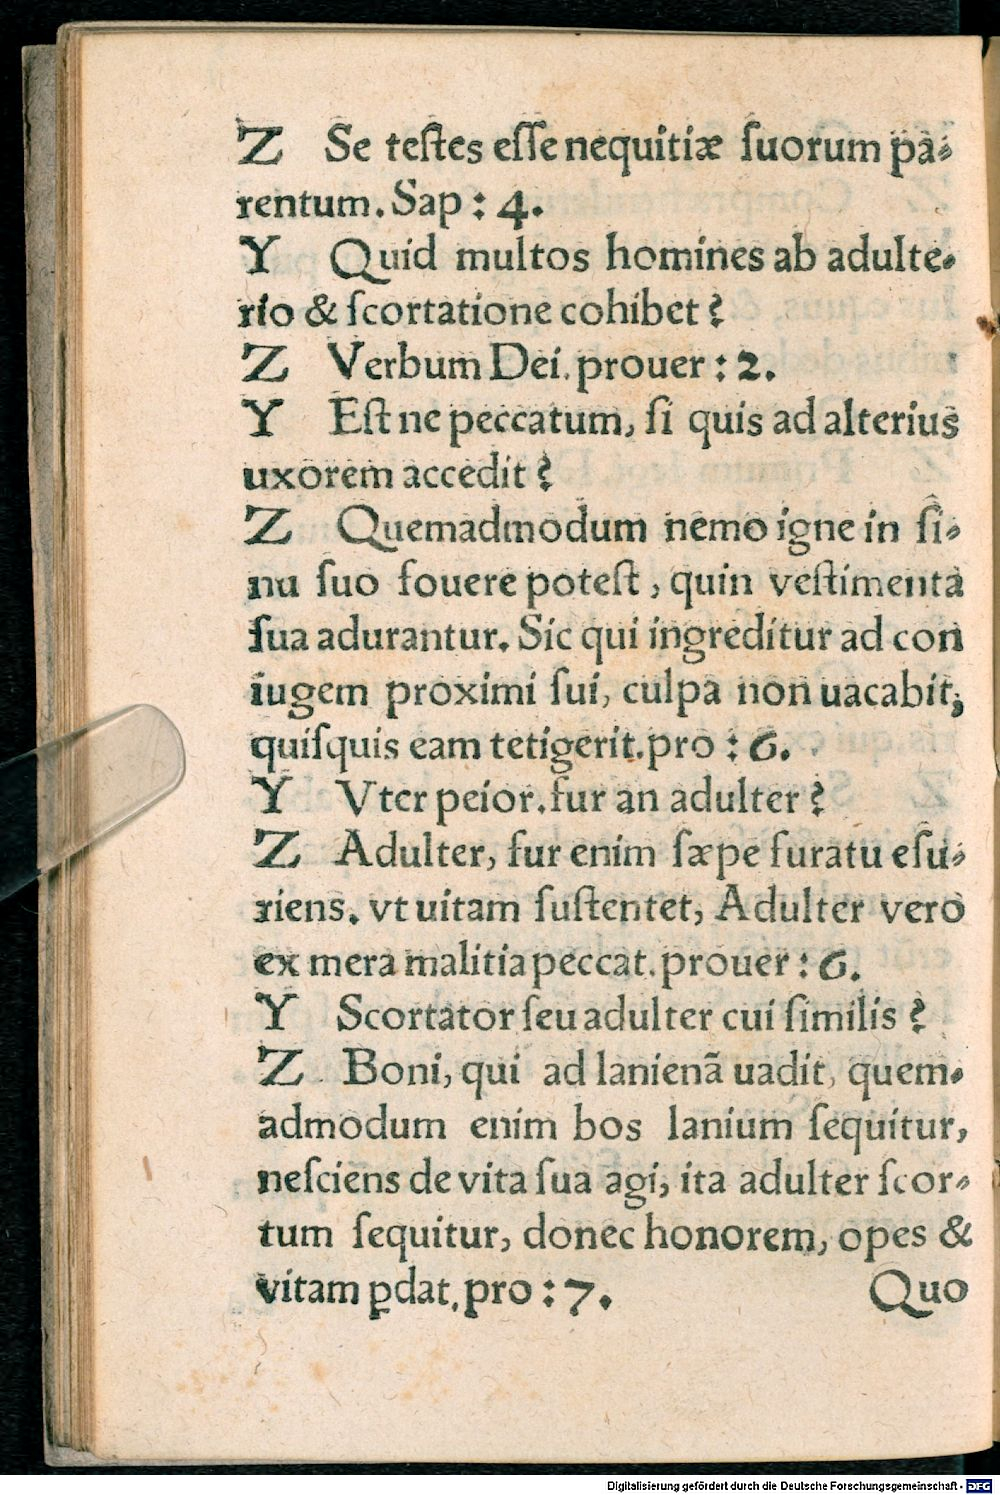 Z Se teſtes eſſe nequitiæ ſuorum pa⸗
rentum. Sap : 4.
Y Quid multos homines ab adulte⸗
rio & ſcortatione cohibet ?
Z Verbum Dei. prouer : 2.
Y Eſt ne peccatum, ſi quis ad alterius
uxorem accedit ?
Z Quemadmodum nemo igne in ſi⸗
nu ſuo fouere poteſt, quin veſtimenta
ſua adurantur. Sic qui ingreditur ad con
iugem proximi ſui, culpa non uacabit,
quiſquis eam tetigerit. pro : 6.
Y Vter peior. fur an adulter ?
Z Adulter, fur enim ſæpe furatu eſu⸗
riens. vt uitam ſuſtentet, Adulter vero
ex mera malitia peccat. prouer : 6.
Y Scortator ſeu adulter cui ſimilis ?
Z Boni, qui ad lanienã uadit, quem⸗
admodum enim bos lanium ſequitur,
neſciens de vita ſua agi, ita adulter ſcor⸗
tum ſequitur, donec honorem, opes &
vitam ꝑdat. pro : 7. Quo
Digitalisierung gefördert durch die Deutsche Forschungsgemeinschaft - DFG